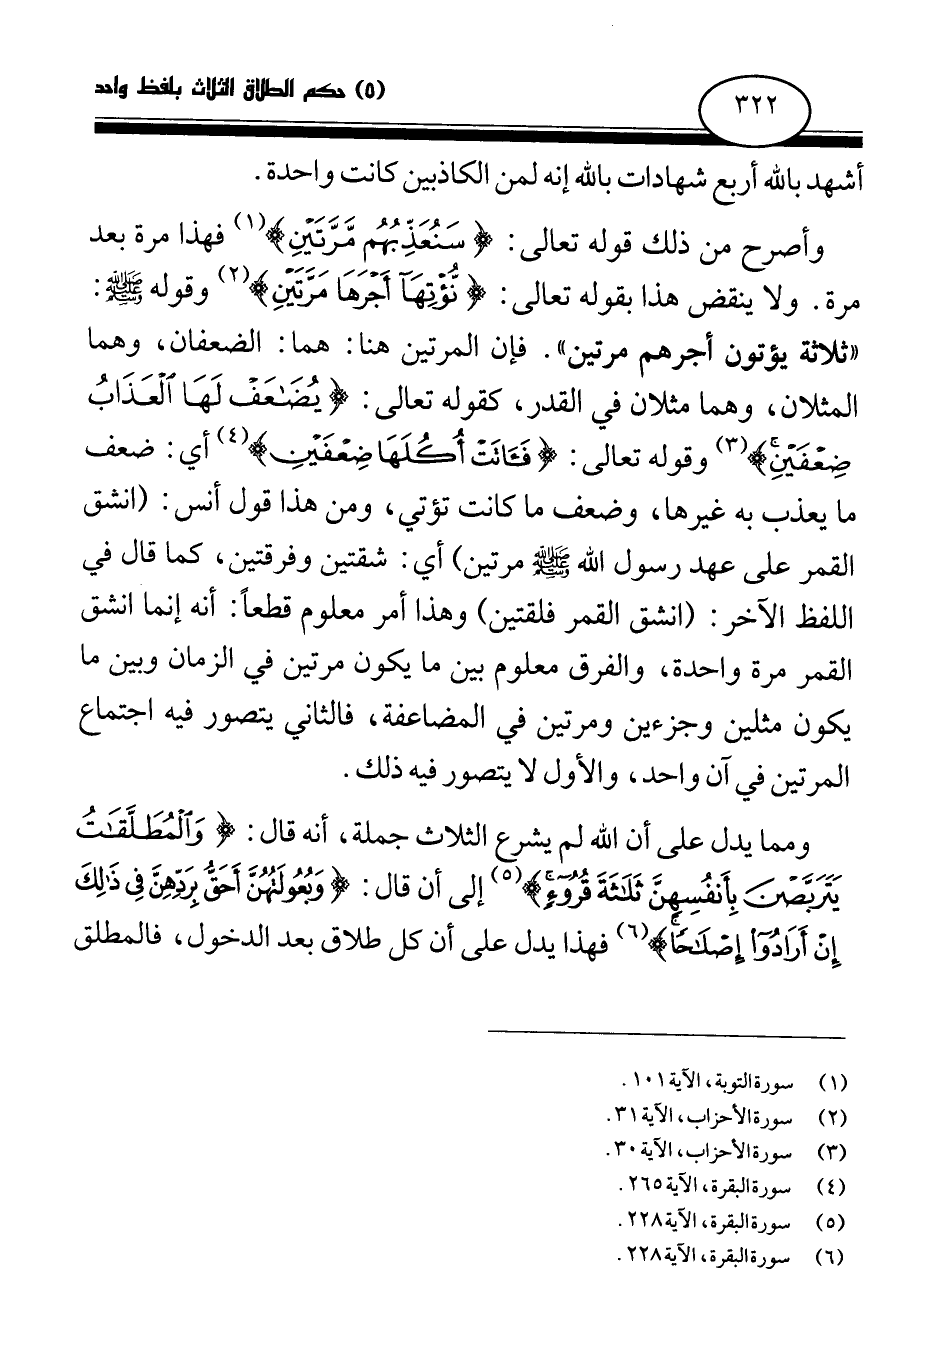 (٥) حكم الطلاق الثلاث بلفظ واحد
٣٢٢
أشهد بالله أربع شهادات بالله إنه لمن الكاذبين كانت واحدة.
وأصرح من ذلك قوله تعالى: ﴿ سَنُعَذِّبُهُم مَّرَّتَيْنِ﴾(١) فهذا مرة بعد
مرة. ولا ينقض هذا بقوله تعالى: ﴿ نُّؤْتِهَآ أَجْرَهَا مَرَّتَيْنِ﴾(٢) وقوله ﷺ:
«ثلاثة يؤتون أجرهم مرتين». فإن المرتين هنا: هما: الضعفان، وهما
المثلان، وهما مثلان في القدر، كقوله تعالى: ﴿ يُضَٰعَفْ لَهَا ٱلْعَذَابُ
ضِعْفَيْنِۚ﴾(٣) وقوله تعالى: ﴿ فَـَٔاتَتْ أُكُلَهَا ضِعْفَيْنِ﴾(٤) أي: ضعف
ما يعذب به غيرها، وضعف ما كانت تؤتي، ومن هذا قول أنس: (انشق
القمر على عهد رسول الله ﷺ مرتين) أي: شقتين وفرقتين، كما قال في
اللفظ الآخر: (انشق القمر فلقتين) وهذا أمر معلوم قطعاً: أنه إنما انشق
القمر مرة واحدة، والفرق معلوم بين ما يكون مرتين في الزمان وبين ما
يكون مثلين وجزءين ومرتين في المضاعفة، فالثاني يتصور فيه اجتماع
المرتين في آن واحد، والأول لا يتصور فيه ذلك.
ومما يدل على أن الله لم يشرع الثلاث جملة، أنه قال: ﴿ وَٱلْمُطَلَّقَٰتُ
يَتَرَبَّصْنَ بِأَنفُسِهِنَّ ثَلَٰثَةَ قُرُوٓءٍ﴾(٥) إلى أن قال: ﴿ وَبُعُولَتُهُنَّ أَحَقُّ بِرَدِّهِنَّ فِى ذَٰلِكَ
إِنْ أَرَادُوٓا۟ إِصْلَٰحًاۚ﴾(٦) فهذا يدل على أن كل طلاق بعد الدخول، فالمطلق
(١) سورة التوبة، الآية ١٠١.
(٢) سورة الأحزاب، الآية ٣١.
(٣) سورة الأحزاب، الآية ٣٠.
(٤) سورة البقرة، الآية ٢٦٥.
(٥) سورة البقرة، الآية ٢٢٨.
(٦) سورة البقرة، الآية ٢٢٨.